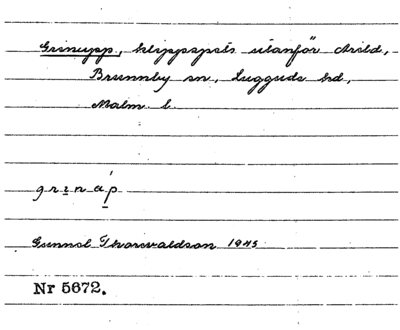 Grinupp, klippspets utanför Arild,
Brunnby sn, Luggude hd,
Malm. l.
grịnáp
Gunnel Thorwaldson 1945
Nr 5672.